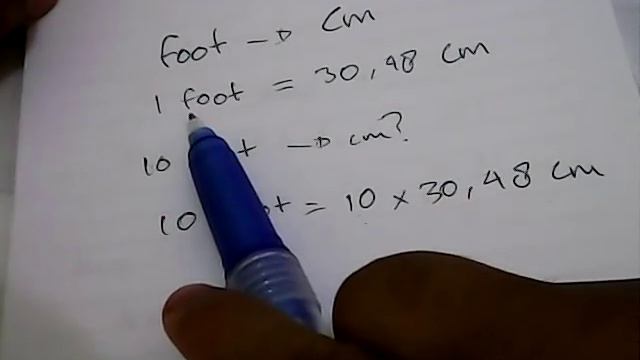 foot → cm
1 foot = 30,48 cm
10 t → cm?
10 ot = 10 × 30,48 cm